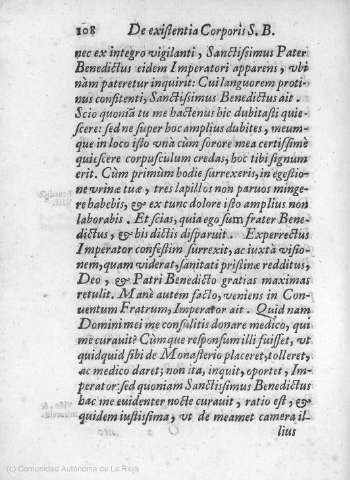 108 De existentia Corporis S. B.
nec ex integro vigilanti, Sanctissimus Pater
Benedictus eidem Imperatori apparens, vbi
nàm pateretur inquirit: Cui languorem proti-
nus confitenti, Sanctissimus Benedictus ait.
Scio quonia tu me hactenus hic dubitasti quie-
scere: sed ne super hoc amplius dubites, meum-
que in loco isto vnà cùm sorore mea certissimè
quiescere corpusculum credas, hoc tibi signum
erit. Cùm primùm hodie surrexeris, in egestio-
ne vrinæ tuæ, tres lapillos non paruos minge-
re habebis, & ex tunc dolore isto amplius non
laborabis. Et scias, quia ego sum frater Bene-
dictus, & his dictis disparuit. Experrectus
Imperator confestim surrexit, ac iuxtà visio-
nem, quam viderat, sanitati pristinæ redditus,
Deo, & Patri Benedicto gratias maximas
retulit. Manè autem facto, veniens in Con-
uentum Fratrum, Imperator ait. Quid nam
Domini mei me consulitis donare medico, qui
me curauit? Cùmque responsum illi fuisset, vt
quidquid sibi de Monasterio placeret, tolleret,
ac medico daret; non ita, inquit, oportet, Im-
perator: sed quoniam Sanctissimus Benedictus
hac me euidenter nocte curauit, ratio est, &
quidem iustissima, vt de meamet camera il-
lius
(c) Comunidad Autónoma de La Rioja